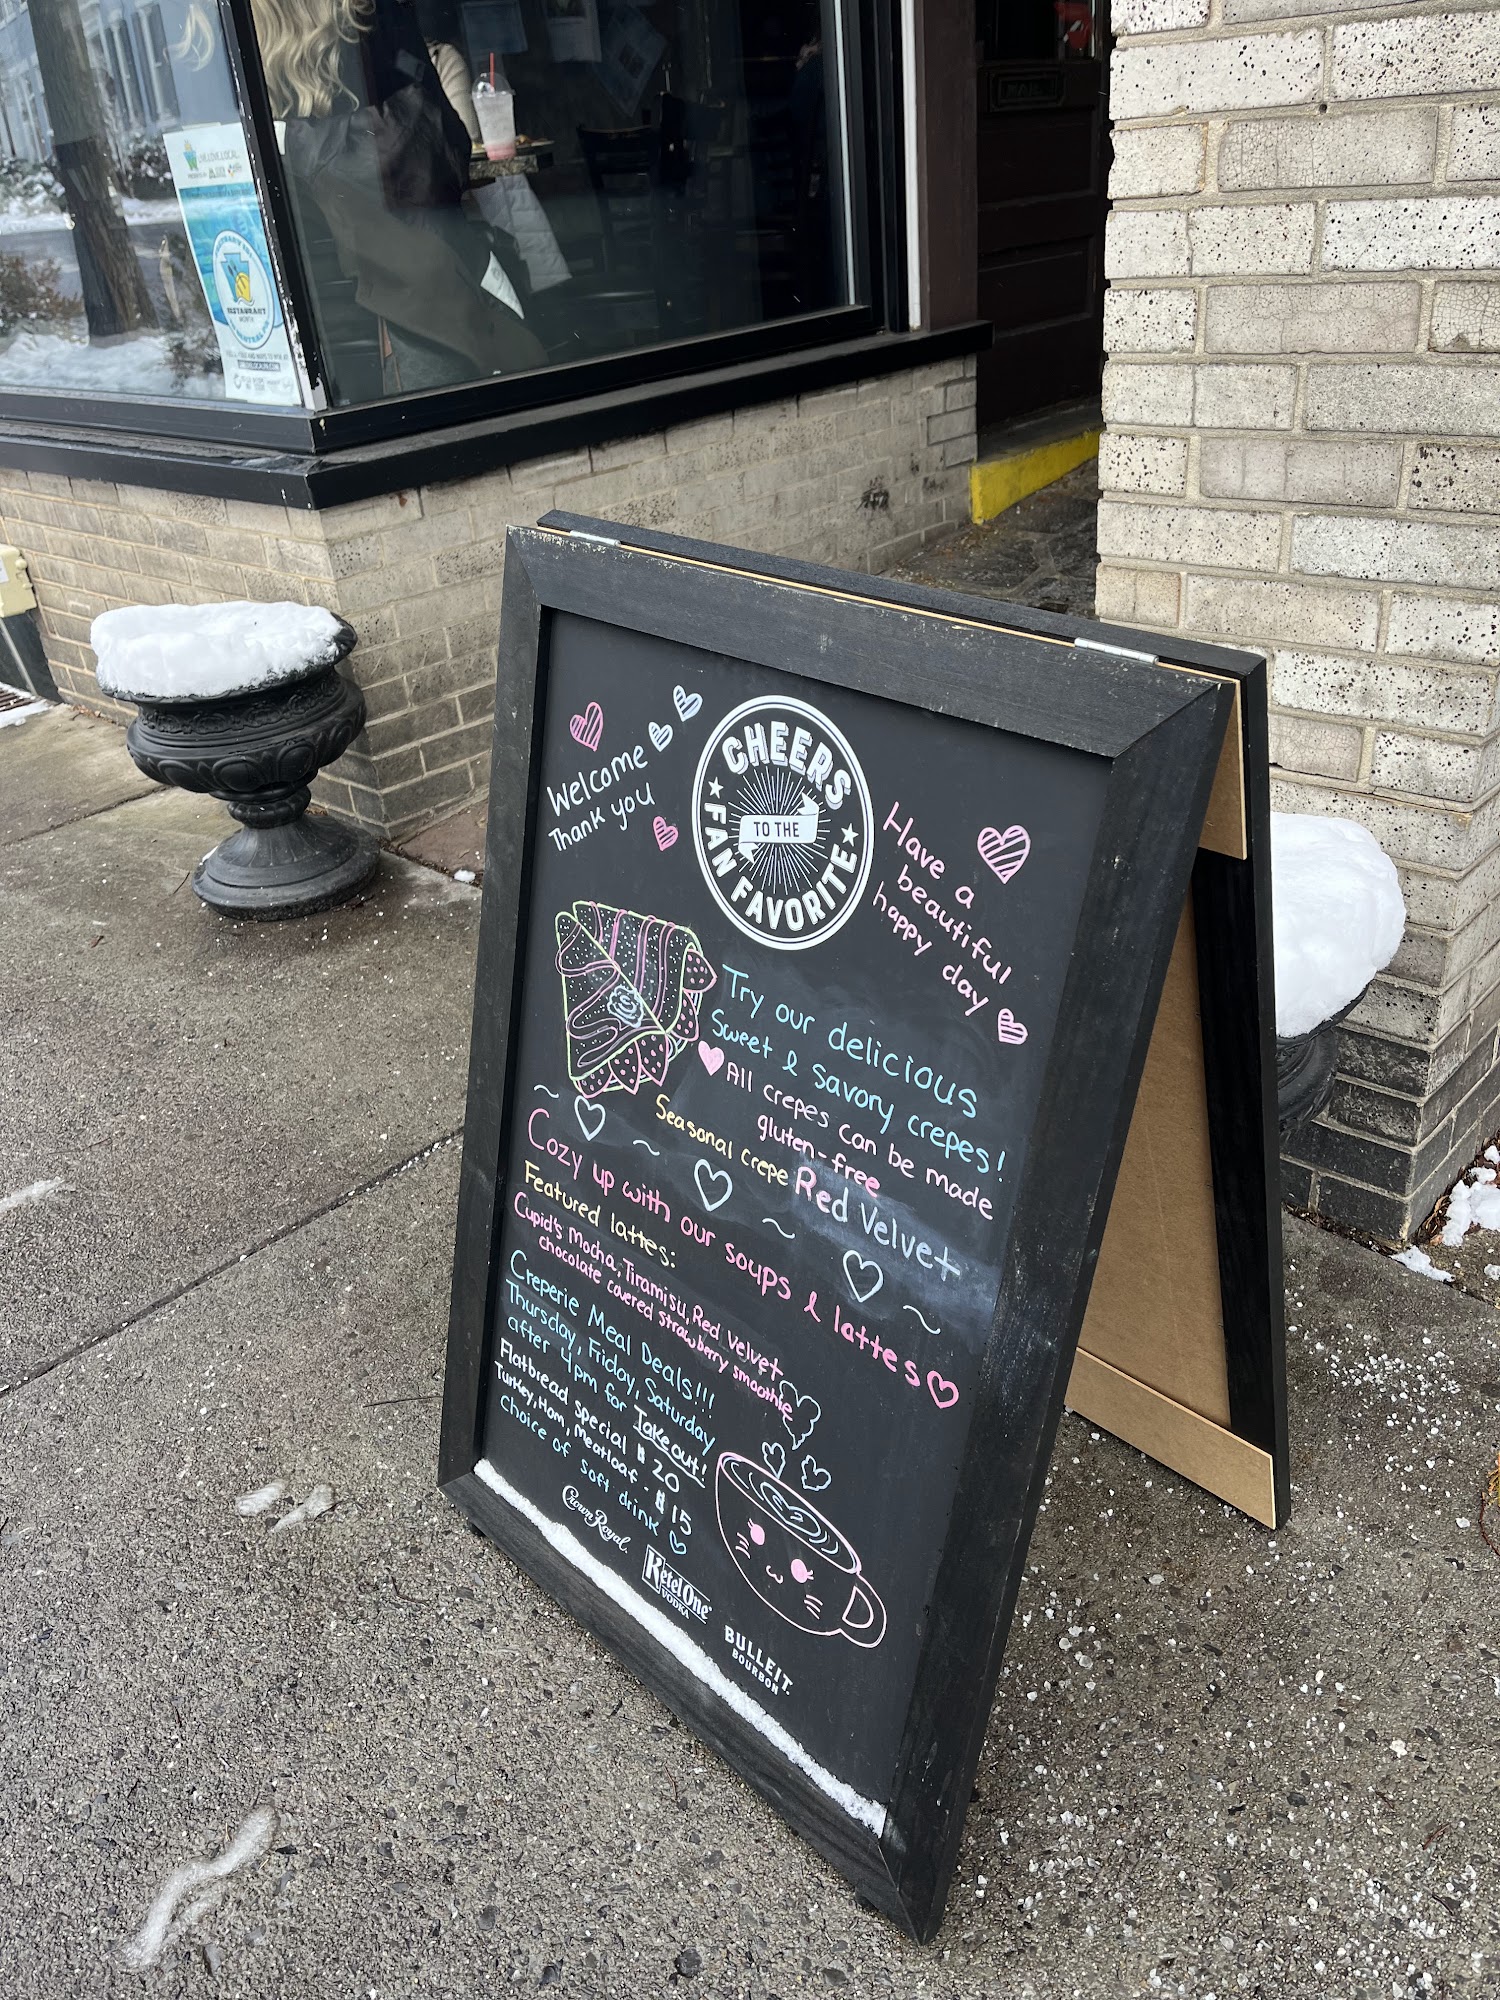 LIVE LOVE LOCAL
RESTAURANT
MAIL
CHEERS
TO THE
FAN FAVORITE
Welcome
Thank you
Have a
beautiful
happy day
Try our delicious
Sweet & Savory crepes!
All crepes can be made
gluten-free
Seasonal crepe Red Velvet
Cozy up with our soups & lattes
Featured lattes:
Cupid's Mocha, Tiramisu, Red Velvet
chocolate covered strawberry smoothie
Creperie Meal Deals!!!
Thursday, Friday, Saturday
after 4pm for Takeout!
Flatbread special $20
Turkey, Ham, Meatloaf - $15
choice of soft drink
Crown Royal.
Ketel One
VODKA
BULLEIT.
BOURBON